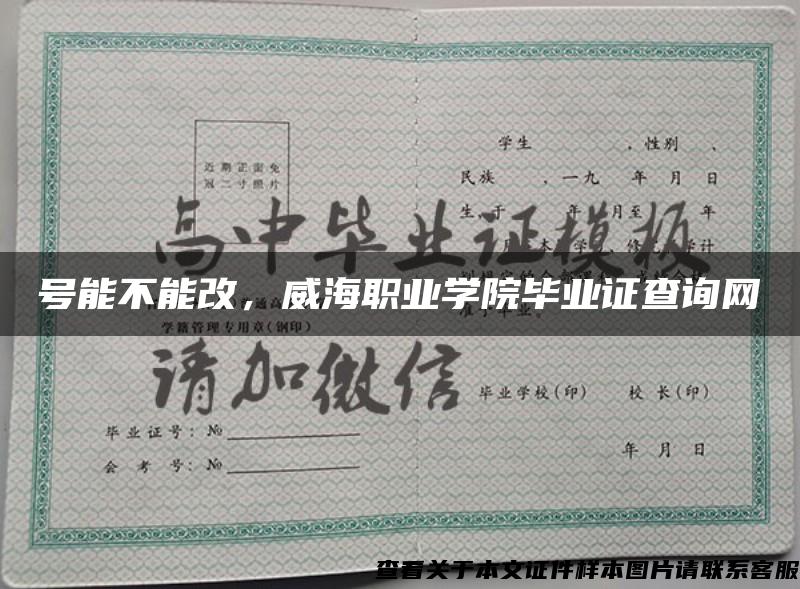 学生 ，性别 、
近期正面免
冠二寸照片
民族 、一九 年 月 日
生.于 年 月至 年
高中毕业证模板
号能不能改，威海职业学院毕业证查询网
学籍管理专用章(钢印)
准予毕业。
请加微信
毕业学校(印) 校 长(印)
毕业证号：№
会 考 号：№
年 月 日
查看关于本文证件样本图片请联系客服